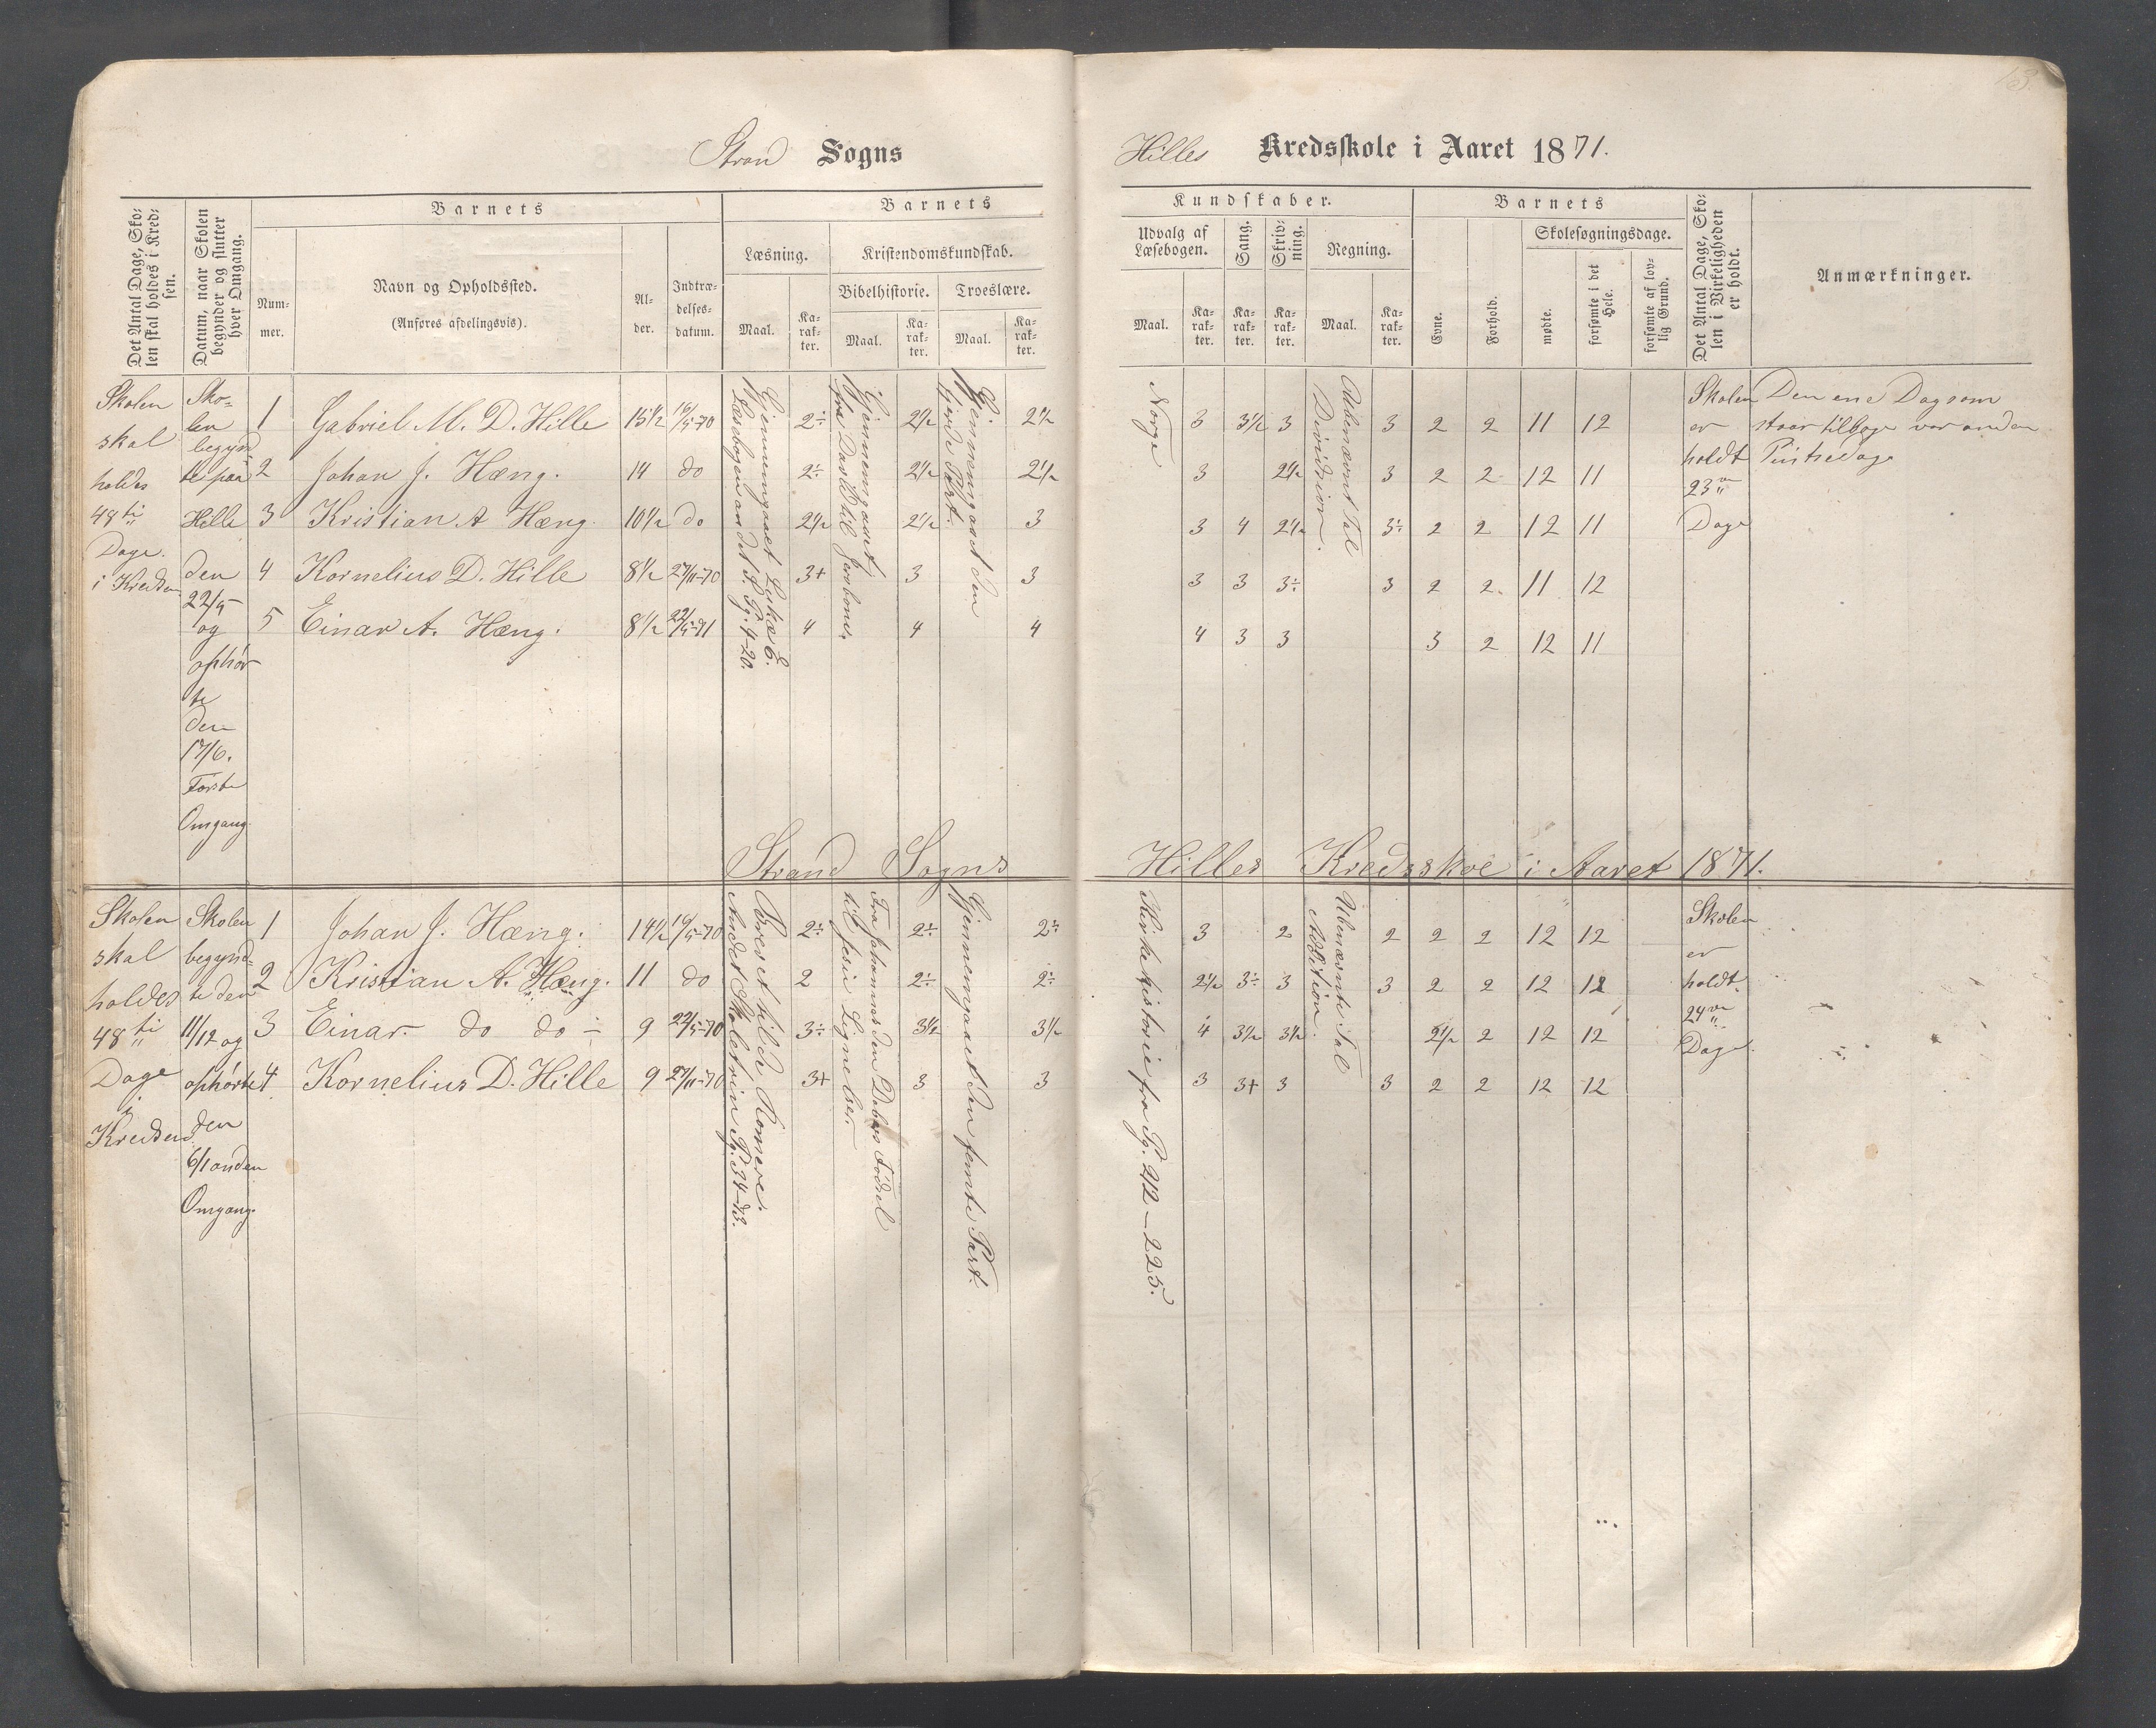 13.
Strand Sogns
Hilles Kredsskole i Aaret 1871.
Det Antal Dage, Skolen skal holdes i Kredsen.
Datum, naar Skolen begynder og slutter hver Omgang.
Barnets
Nummer.
Navn og Opholdssted.
(Anføres afdelingsvis).
Alder.
Indtrædelsesdatum.
Barnets
Læsning.
Maal.
Karakter.
Kristendomskundskab.
Bibelhistorie.
Maal.
Karakter.
Troeslære.
Maal.
Karakter.
Kundskaber.
Udvalg af Læsebogen.
Maal.
Karakter.
Sang.
Karakter.
Skrivning.
Karakter.
Regning.
Maal.
Karakter.
Barnets
Evne.
Forhold.
Skolesøgningsdage.
mødte.
forsømte i det Hele.
forsømte af lovlig Grund.
Det Antal Dage, Skolen i Virkeligheden er holdt.
Anmærkninger.
Skolen
skal
holdes
48 ti
Dage
i Kredsen
Sko-
len
begynd-
te paa
Hille
den
22/5
og
ophør
te
den
17/6.
Første
Omgang
1 Gabriel M. D. Hille 15 1/2 16/5-70 2÷ 2 1/2 2 1/2 3 3 1/2 3 3 2 2 11 12
2 Johan J. Hæng. 14 do 2÷ 2 1/2 2 1/2 3 2 1/2 3 2 2 12 11
3 Kristian A Hæng. 10 1/2 do 2 1/2 2 1/2 3 3 4 2 1/2 3÷ 2 2 12 11
4 Kornelius D. Hille 8 1/2 27/11-70 3+ 3 3 3 3 3÷ 3 2 2 11 12
5 Einar A. Hæng. 8 1/2 22/5-71 4 4 4 4 3 3 3 2 12 11
Gjennemgaaet
Læsebogen andet S. Pg. 4-20.
Gjennemgaaet
fra David til Jeroboam
Gjennemgaaet den
fjerde Part.
Norge
Ubenævnt Tal
Division.
Skolen
er
holdt
23
Dage
Den ene Dag som
staar tilbage var anden
Pintsedag
Strand Sogns
Hilles Kredsskole i Aaret 1871.
Skolen
skal
holdes
48 ti
Dage
i
Kredsen
Skolen
begynd-
te den
11/12 og
ophørte
den
6/1 anden
Omgang.
1 Johan J. Hæng. 14 1/2 16/5-70 2÷ 2÷ 2÷ 3 2 2 2 2 12 12
2 Kristian A. Hæng. 11 do 2 2÷ 2÷ 2 1/2 3÷ 3 3 2 2 12 12
3 Einar do do 9 22/5-70 3÷ 3 1/2 3 1/2 4 3 1/2 3 1/2 2 1/2 2 12 12
4 Kornelius D. Hille 9 27/11-70 3+ 3 3 3 3+ 3 3 2 2 12 12
Andet Skoletrin Pg. 34-43.
Fra Johannes den Døbers Fødsel
til Jesu Lignelser.
Gjennemgaaet den femte Part.
Kirkehistorie fra Pg. 212-225.
Ubenævnte Tal
Addition.
Skolen
er
holdt
24
Dage.